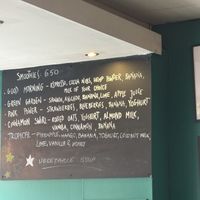 SMOOTHIES 6.50
- GOOD MORNING - ESPRESSO, COCOA NIBS, HEMP POWDER, BANANA,
MILK OF YOUR CHOICE
- GREEN GARDEN - SPINACH, AVOCADO, BANANA, LIME, APPLE JUICE
- PINK POWER - STRAWBERRIES, RASPBERRIES, BANANA, YOGHURT
- CINNAMON SWIRL - ROLLED OATS, YOGHURT, ALMOND MILK,
VANILLA, CINNAMON, BANANA
TROPICAL - PINEAPPLE, MANGO, BANANA, YOGHURT, COCONUT MILK,
LIME, VANILLA &